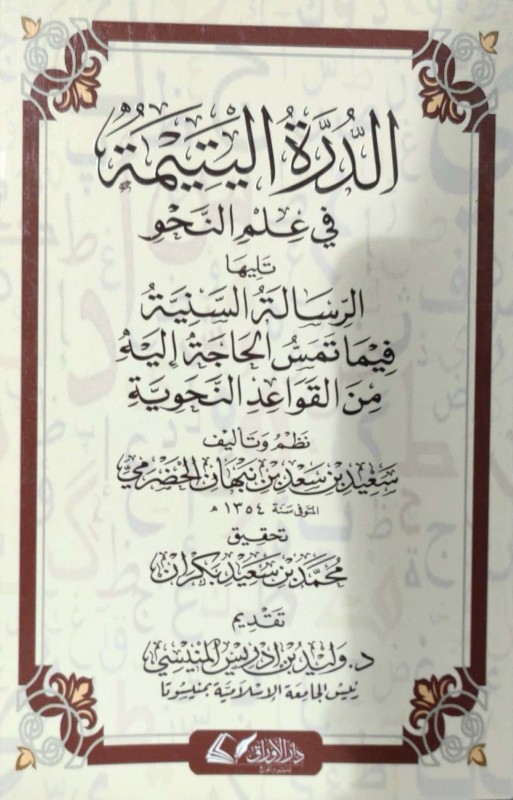 الدُّرَّةُ الْيَتِيمَةُ
فِي عِلْمِ النَّحْوِ
تَلِيهَا
الرِّسَالَةُ السَّنِيَّةُ
فِيمَا تَمَسُّ الحَاجَةُ إِلَيْهِ
مِنَ القَوَاعِدِ النَّحْوِيَّةِ
نَظْمُ وَتَأْلِيفُ
سَعِيدِ بْنِ سَعْدِ بْنِ نَبْهَانَ الحَضْرَمِيِّ
المتوفى سنة ١٣٥٤ هـ
تحقيق
مُحَمَّدِ بْنِ سَعِيدٍ بَكْرَانَ
تَقْدِيم
د. وَلِيدُ بْنُ إِدْرِيسَ المنِيسِيّ
رئيس الجامعة الإسلامية بمنيسوتا
دار الأوراق